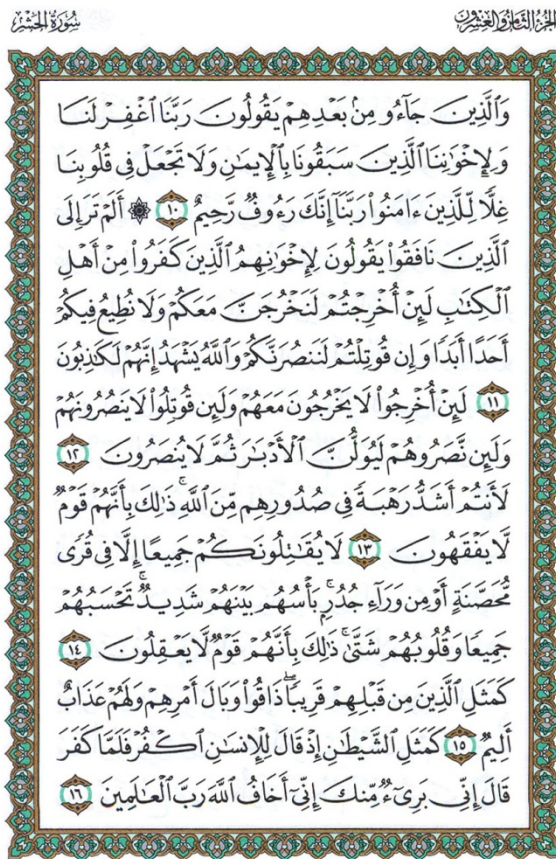 الجزء الثامن والعشرون
سورة الحشر
وَٱلَّذِينَ جَآءُو مِنۢ بَعْدِهِمْ يَقُولُونَ رَبَّنَا ٱغْفِرْ لَنَا
وَلِإِخْوَٰنِنَا ٱلَّذِينَ سَبَقُونَا بِٱلْإِيمَٰنِ وَلَا تَجْعَلْ فِى قُلُوبِنَا
غِلًّا لِّلَّذِينَ ءَامَنُوا۟ رَبَّنَآ إِنَّكَ رَءُوفٌ رَّحِيمٌ ١٠ ۞ أَلَمْ تَرَ إِلَى
ٱلَّذِينَ نَافَقُوا۟ يَقُولُونَ لِإِخْوَٰنِهِمُ ٱلَّذِينَ كَفَرُوا۟ مِنْ أَهْلِ
ٱلْكِتَٰبِ لَئِنْ أُخْرِجْتُمْ لَنَخْرُجَنَّ مَعَكُمْ وَلَا نُطِيعُ فِيكُمْ
أَحَدًا أَبَدًا وَإِن قُوتِلْتُمْ لَنَنصُرَنَّكُمْ وَٱللَّهُ يَشْهَدُ إِنَّهُمْ لَكَٰذِبُونَ
١١ لَئِنْ أُخْرِجُوا۟ لَا يَخْرُجُونَ مَعَهُمْ وَلَئِن قُوتِلُوا۟ لَا يَنصُرُونَهُمْ
وَلَئِن نَّصَرُوهُمْ لَيُوَلُّنَّ ٱلْأَدْبَٰرَ ثُمَّ لَا يُنصَرُونَ ١٢
لَأَنتُمْ أَشَدُّ رَهْبَةً فِى صُدُورِهِم مِّنَ ٱللَّهِ ۚ ذَٰلِكَ بِأَنَّهُمْ قَوْمٌ
لَّا يَفْقَهُونَ ١٣ لَا يُقَٰتِلُونَكُمْ جَمِيعًا إِلَّا فِى قُرًى
مُّحَصَّنَةٍ أَوْ مِن وَرَآءِ جُدُرٍۭ ۚ بَأْسُهُم بَيْنَهُمْ شَدِيدٌ ۚ تَحْسَبُهُمْ
جَمِيعًا وَقُلُوبُهُمْ شَتَّىٰ ۚ ذَٰلِكَ بِأَنَّهُمْ قَوْمٌ لَّا يَعْقِلُونَ ١٤
كَمَثَلِ ٱلَّذِينَ مِن قَبْلِهِمْ قَرِيبًا ۖ ذَاقُوا۟ وَبَالَ أَمْرِهِمْ وَلَهُمْ عَذَابٌ
أَلِيمٌ ١٥ كَمَثَلِ ٱلشَّيْطَٰنِ إِذْ قَالَ لِلْإِنسَٰنِ ٱكْفُرْ فَلَمَّا كَفَرَ
قَالَ إِنِّى بَرِىٓءٌ مِّنكَ إِنِّىٓ أَخَافُ ٱللَّهَ رَبَّ ٱلْعَٰلَمِينَ ١٦